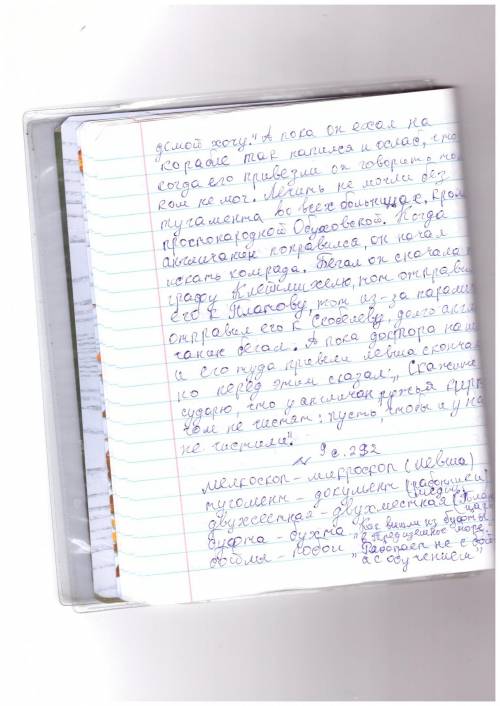 домой хочу." А пока он ехал на
корабле так напился и ослаб, что
когда его привезли он говорить тол
ком не мог. Лечить не могли без
тугамента во всех больницах, кром
простонародной Обуховской. Когда
англичанин поправился, он начал
искать комрада. Бегал он сначала к
графу Клейнмихелю, тот отправил
его к Платову, тот из-за
отправил его к Скобелеву, долго англ
чанин бегал. А пока доктора наш
и его туда привели левша скончал
но перед этим сказал: „Скажите
сударю, что у англичан ружья кирп
чом не чистят: пусть, чтобы и у на
не чистили".
№ 9 с. 292
мелкоскоп - микроскоп (левша)
тугомент - документ (работники)
двухсестная - двухместная (Пла
буфта - бухта "Как вышли из буфты
в Твердиземное море"
бойлом - побои "Работает не с бой
а с обучением"